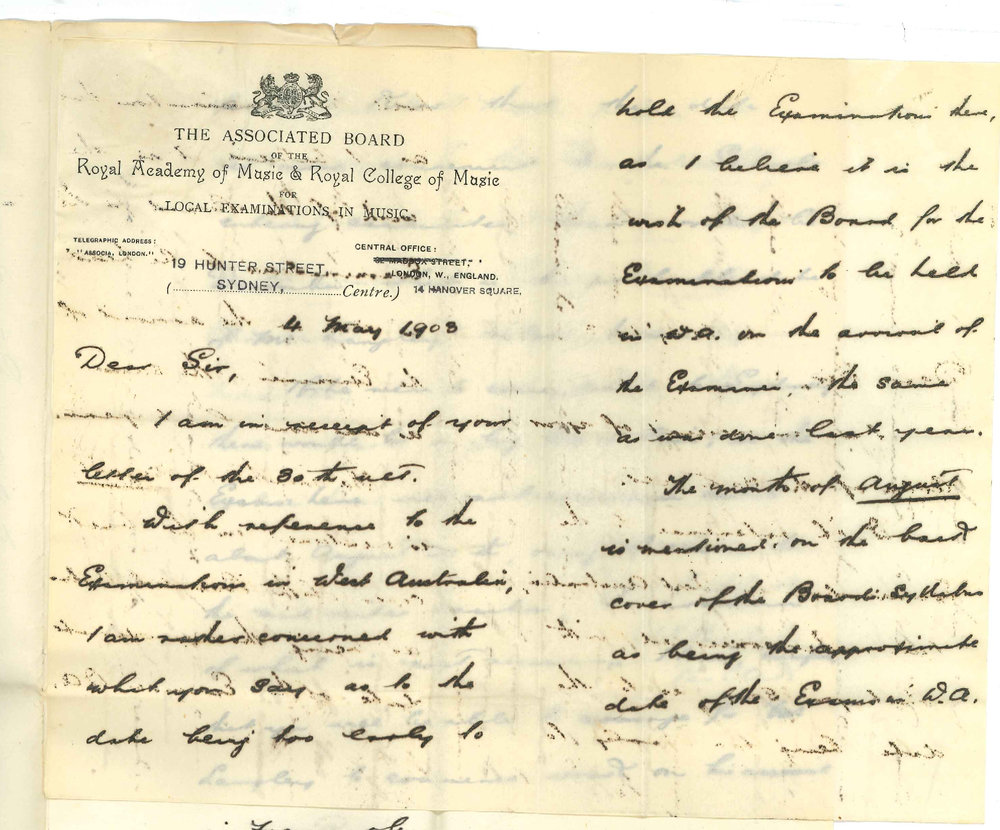 THE ASSOCIATED BOARD
OF THE
Royal Academy of Music & Royal College of Music
FOR
LOCAL EXAMINATIONS IN MUSIC.
TELEGRAPHIC ADDRESS:
"ASSOCIA, LONDON."
CENTRAL OFFICE:
32 MADDOX STREET,
LONDON, W., ENGLAND.
14 HANOVER SQUARE,
19 HUNTER STREET
SYDNEY,
( Centre.)
4 May 1903
Dear Sir,
I am in receipt of your
letter of the 30th ult.
With reference to the
Examinations in West Australia,
I am rather concerned with
what you say as to the
date being too early to
hold the Examinations there,
as I believe it is the
wish of the Board for the
Examinations to be held
in W.A. on the arrival of
the Examiner, the same
as was done last year.
The month of August
is mentioned on the back
cover of the Board's Syllabus
as being the approximate
date of the Exams in W.A.